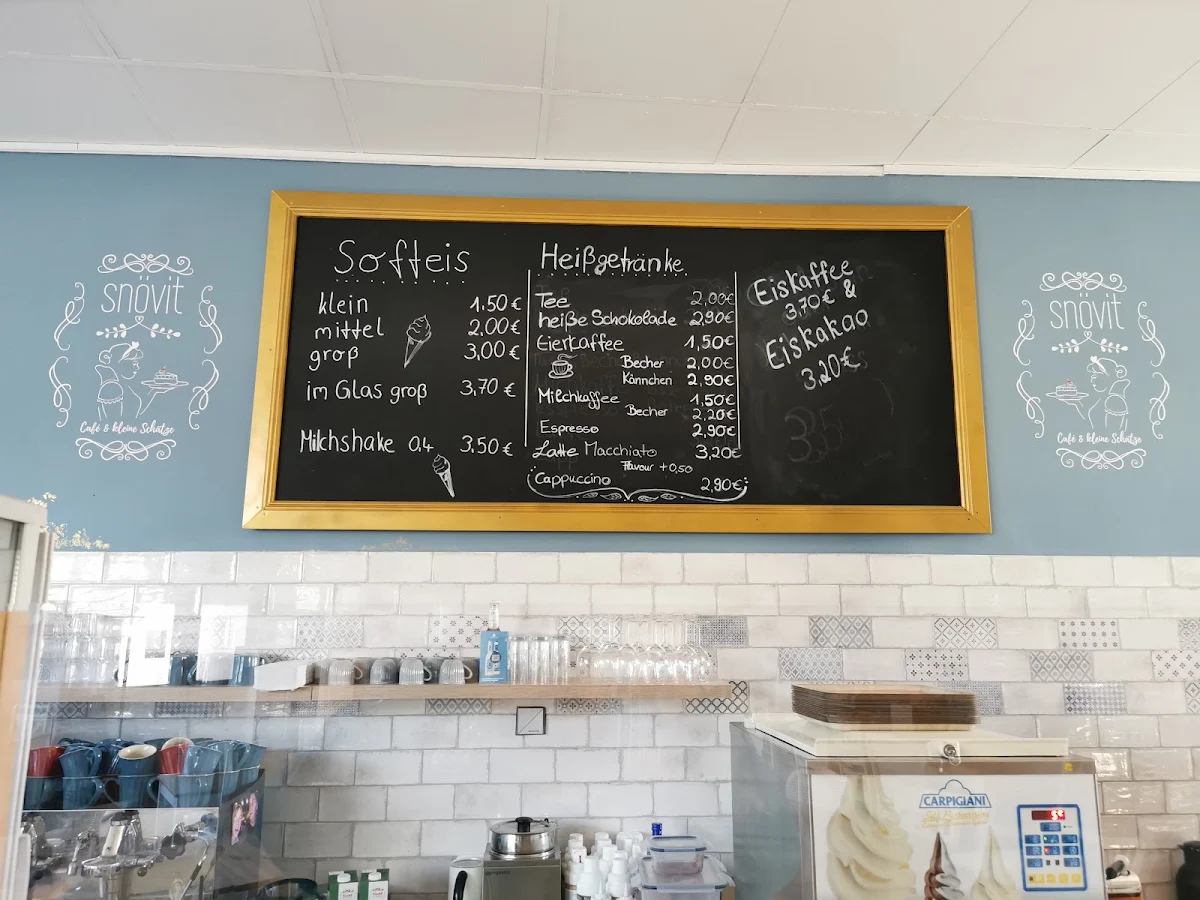 snövit
Café & kleine Schätze
Softeis
klein 1,50 €
mittel 2,00€
groß 3,00 €
im Glas groß 3,70 €
Milchshake 0,4 3,50 €
Heißgetränke
Tee 2,00€
heiße Schokolade 2,90€
Eierkaffee 1,50€
Becher 2,00€
Kännchen 2,90€
Milchkaffee 1,50€
Becher 2,20€
Espresso 2,90€
Latte Macchiato 3,20€
Flavour +0,50
Cappuccino 2,90€
Eiskaffee
3,70€ &
Eiskakao
3,20€
snövit
Café & kleine Schätze
CARPIGIANI